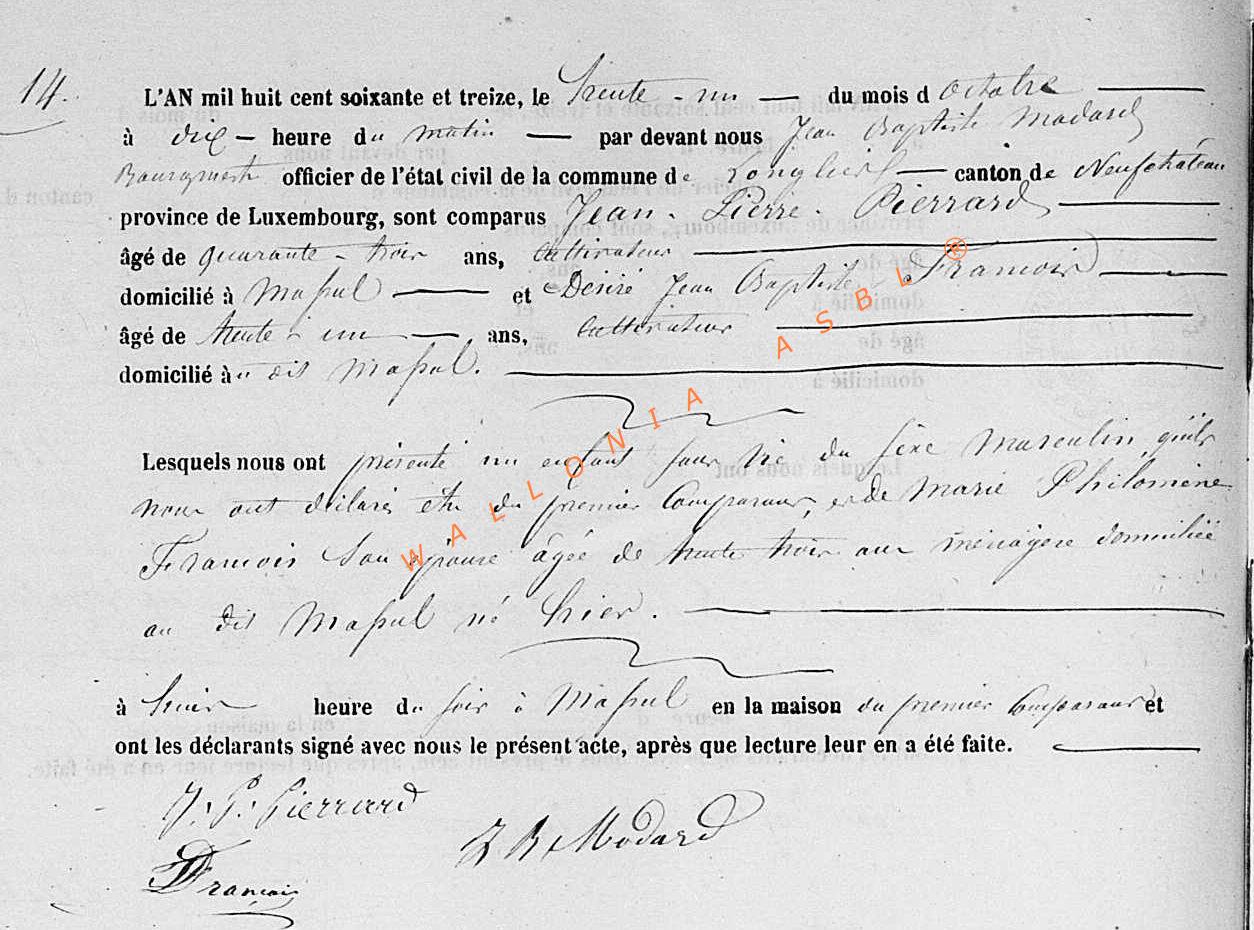 14.
L'AN mil huit cent soixante et treize, le trente-un du mois d octobre
à dix heure du matin par devant nous Jean Baptiste Modard
Bourgmestre officier de l'état civil de la commune de Longlier canton de Neufchâteau
province de Luxembourg, sont comparus Jean-Pierre Pierrard
âgé de quarante-trois ans, cultivateur
domicilié à Massul et Désiré Jean Baptiste Francois
âgé de trente-un ans, cultivateur
domicilié à dit Massul.
Lesquels nous ont présenté un enfant sans vie du sexe masculin, qu'ils
nous ont déclaré être du premier Comparant, et de Marie Philomène
Francois son épouse âgée de trente trois ans ménagère domiciliée
au dit Massul né hier.
à heure du soir à Massul en la maison du premier Comparant et
ont les déclarants signé avec nous le présent acte, après que lecture leur en a été faite.
J. P. Pierrard
J B Modard
D Francois
WALLONIA ASBL ®